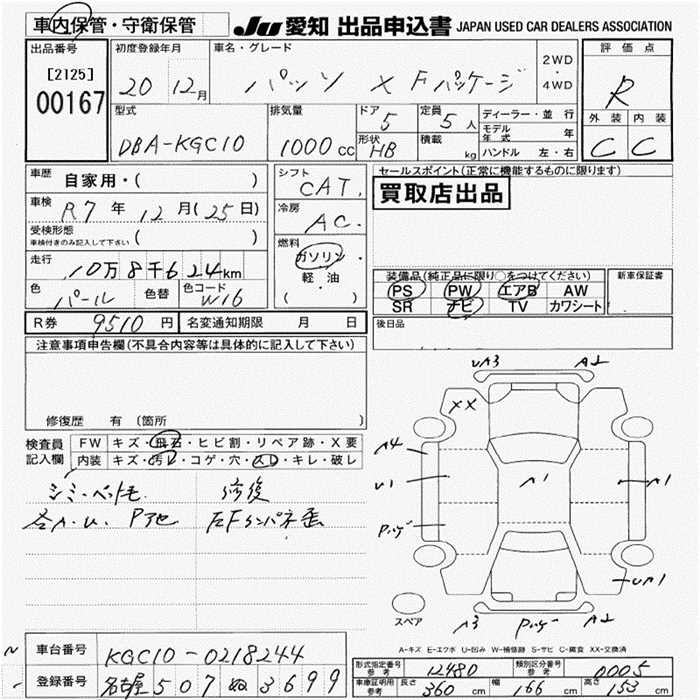 車内保管・守衛保管 JU 愛知 出品申込書 JAPAN USED CAR DEALERS ASSOCIATION
出品番号 初度登録年月 車名・グレード 評価点
[2125] 20 12月 パッソ X Fパッケージ 2WD・4WD R
00167
型式 排気量 ドア 5 定員 5人 ディーラー・並行 外装 内装
DBA-KGC10 1000cc 形状 HB 積載 kg モデル年式 年 C C
ハンドル 左・右
車歴 自家用・( ) シフト CAT. セールスポイント(正常に機能するものに限ります)
車検 R7年 12月(25日) 冷房 AC. 買取店出品
受検形態 車検付きのみ記入して下さい ( )
走行 10万8千624km 燃料 ガソリン・軽・油 ( )
色 パール 色替 色コード W16 装備品(純正品に限り○をつけてください) 新車保証書
PS PW エアB AW
SR ナビ TV カワシート
R券 9510円 名変通知期限 月 日 後日品
注意事項申告欄(不具合内容等は具体的に記入して下さい)
修復歴 有 〔箇所 〕
検査員記入欄 FW キズ・飛石・ヒビ割・リペア跡・X要
内装 キズ・汚レ・コゲ・穴・スレ・キレ・破レ
シミ・ペット毛 修復
各A.U. P他 左Fインパネ歪
UA3 A1
XX
A4
U1 A1 A1
Pハゲ
UA1
スペア A3 Pハゲ A2
A-キズ E-エクボ U-凹み W-補修跡 S-サビ C-腐食 XX-交換済
車台番号 KGC10-0218244
登録番号 名古屋 507 ぬ 3699
形式指定番号 参考 12480 類別区分番号 参考 0005
車庫証明用 参考 長さ 360cm 幅 166cm 高さ 153cm